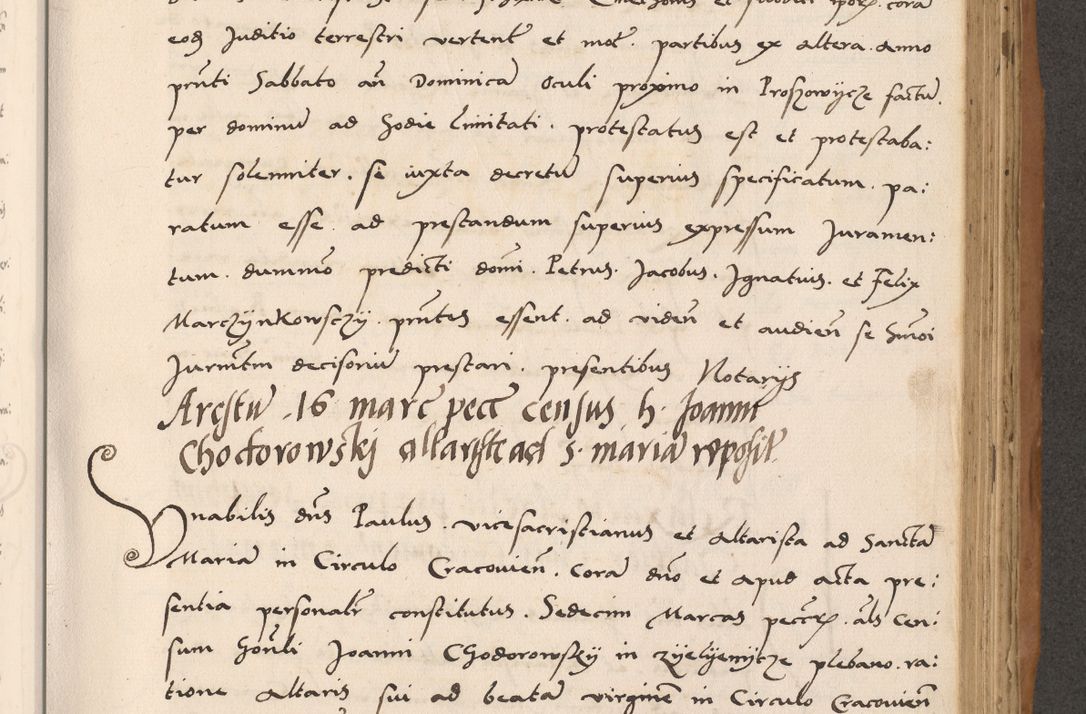 eod Juditio terrestri vertent et moc. partibus ex altera. Anno
prnti Sabbato an Dominica Oculi proximo in Proszowijcze factu.
per dominu ad hodie limitati. protestatus est et protestaba:
tur solemniter. se iuxta decretu superius specificatum. pa:
ratum esse. ad prestandum superius expressum Juramen:
tum. dummo predicti domi. Petrus. Jacobus. Ignatius. et Felix
Marczijnkowsczij. prntes essent. ad viden et audien se hmoi
Jurmtm decisoriu prestari. presentibus Notarijs
Arestu .16 marc pecc census h. Joanni
Chodorowskj altaristae ad S. Maria reposit.
Vnabilis dns Paulus. vicesacristianus et Altarista ad Sancta
Maria in Circulo Cracovien. Cora dno et apud acta pre:
sentia personalr constitutus. Sedecim Marcas pecc. als Cen:
sum honli Joanni Chodorowskij in zijelijenijcze plebano. ra:
tione Altaris sui ad beata virgine in Circulo Cracovien